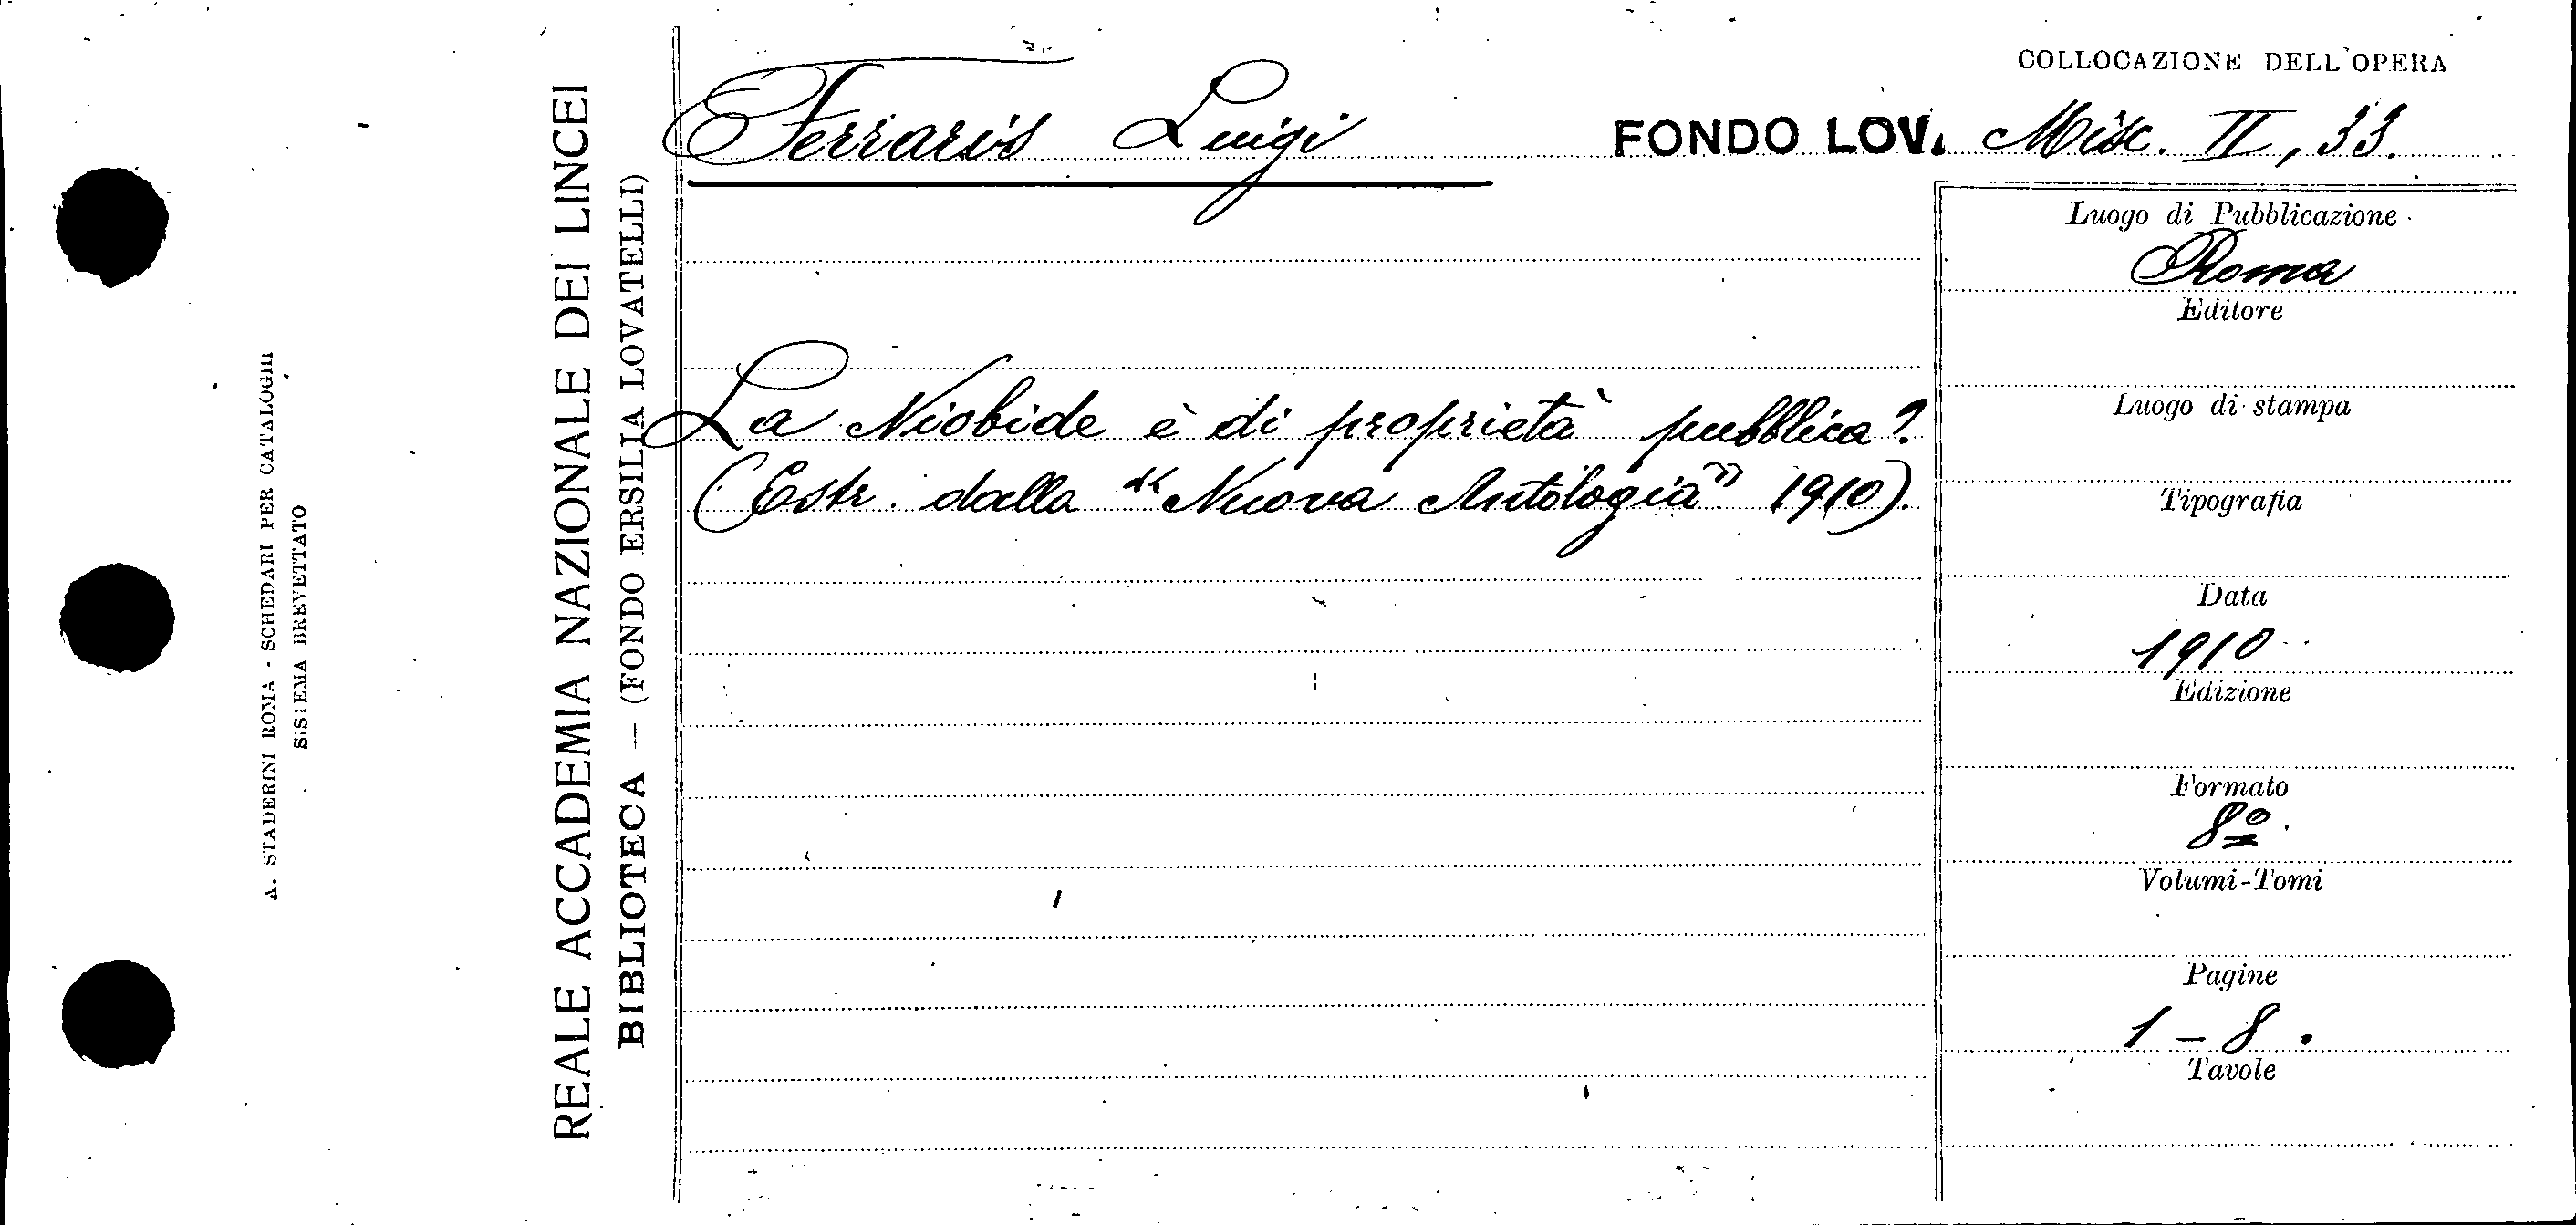 A. STADERINI ROMA - SCHEDARI PER CATALOGHI
SISTEMA BREVETTATO
REALE ACCADEMIA NAZIONALE DEI LINCEI
BIBLIOTECA — (FONDO ERSILIA LOVATELLI)
COLLOCAZIONE DELL'OPERA
Ferraris Luigi
FONDO LOV. Misc. II, 33.
La Niobide è di proprietà pubblica?
(Estr. dalla "Nuova Antologia" 1910).
Luogo di Pubblicazione
Roma
Editore
Luogo di stampa
Tipografia
Data
1910
Edizione
Formato
8º
Volumi-Tomi
Pagine
1-8.
Tavole